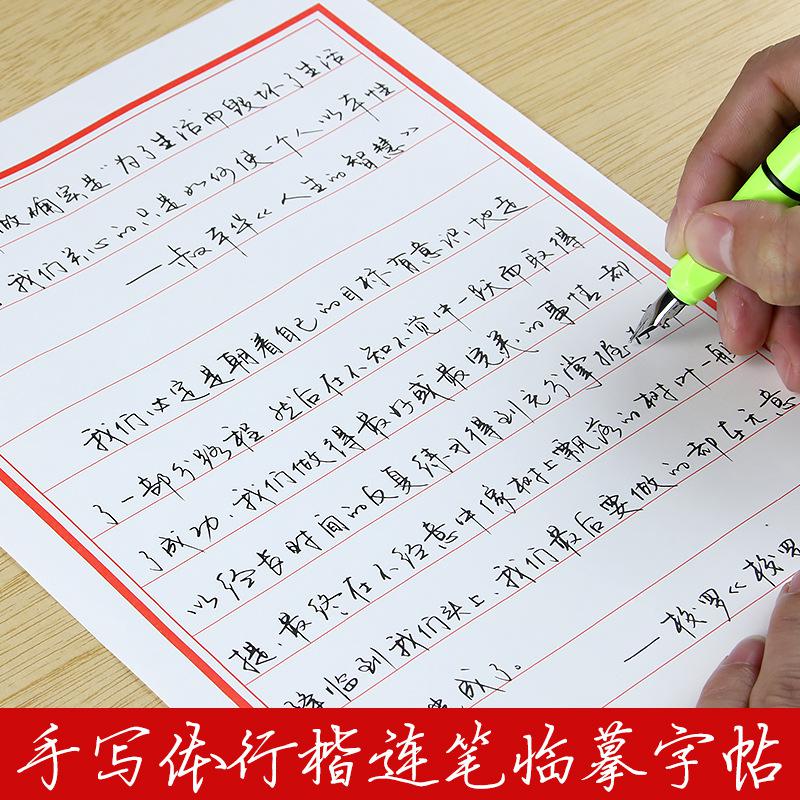 做确实是“为了生活而毁坏了生活
我们关心的只是如何使一个人以本性
——叔本华《人生的智慧》
我们必定是朝着自己的目标有意识地走
了一部分路程，然后在不知不觉中一跃而取得
了成功、我们做得最好或最完美的事情都
以经长时间的反复练习得到充分掌握
提，最终在不经意中像树上飘落的树叶一般
降临到我们头上、我们最后要做的都在无意
成了。
——梭罗《梭罗
手写体行楷连笔临摹字帖